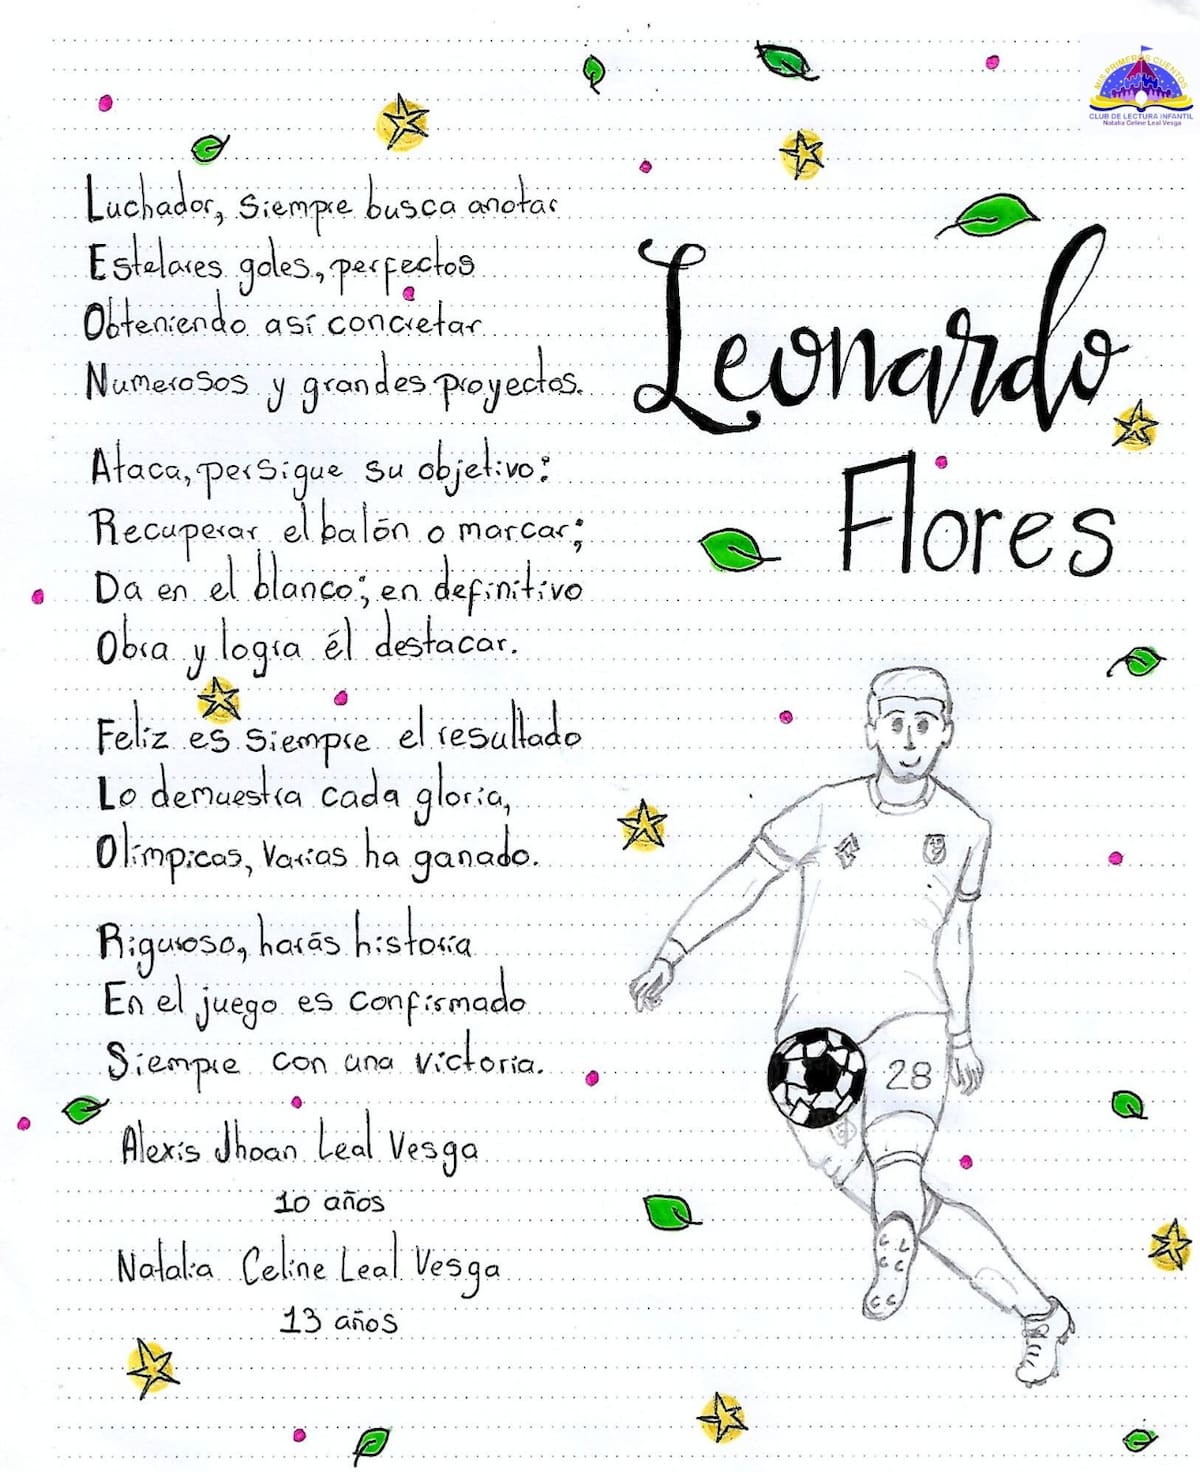 MIS PRIMEROS CUENTOS
CLUB DE LECTURA INFANTIL
Natalia Celine Leal Vesga
Leonardo
Flores
Luchador, siempre busca anotar
Estelares goles, perfectos
Obteniendo así concretar
Numerosos y grandes proyectos.
Ataca, persigue su objetivo:
Recuperar el balón o marcar;
Da en el blanco; en definitivo
Obra y logra él destacar.
Feliz es siempre el resultado
Lo demuestra cada gloria,
Olímpicas, varias ha ganado.
Riguroso, harás historia
En el juego es confirmado
Siempre con una victoria.
Alexis Jhoan Leal Vesga
10 años
Natalia Celine Leal Vesga
13 años
28